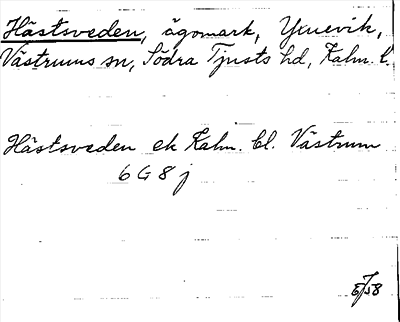 Hästsveden, ägomark, Ynnevik,
Västrums sn, Södra Tjusts hd, Kalm. l.
Hästsveden ek Kalm. bl. Västrum
6 G 8 j